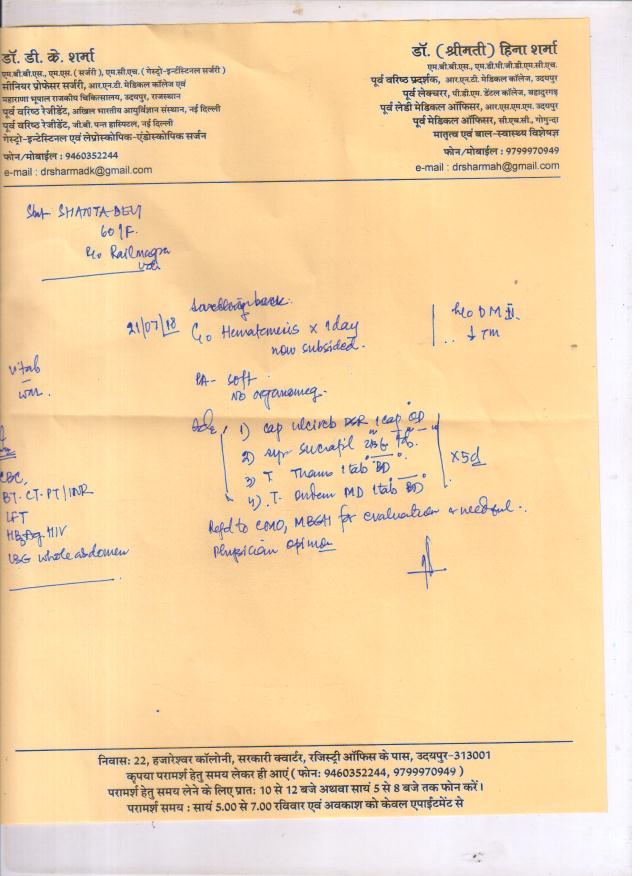 डॉ. डी. के. शर्मा
एम.बी.बी.एस., एम.एस. ( सर्जरी ), एम.सी.एच. ( गेस्ट्रो-इन्टेंस्टिनल सर्जरी )
सीनियर प्रोफेसर सर्जरी, आर.एन.टी. मेडिकल कॉलेज एवं
महाराणा भूपाल राजकीय चिकित्सालय, उदयपुर, राजस्थान
पूर्व वरिष्ठ रेजीडेंट, अखिल भारतीय आयुर्विज्ञान संस्थान, नई दिल्ली
पूर्व वरिष्ठ रेजीडेंट, जी.बी. पन्त हास्पिटल, नई दिल्ली
गेस्ट्रो-इन्टेस्टिनल एवं लेप्रोस्कोपिक-एंडोस्कोपिक सर्जन
फोन/मोबाईल : 9460352244
e-mail : drsharmadk@gmail.com
डॉ. (श्रीमती) हिना शर्मा
एम.बी.बी.एस., एम.डी.पी.जी.डी.एम.सी.एच.
पूर्व वरिष्ठ प्रदर्शक, आर.एन.टी. मेडिकल कॉलेज, उदयपुर
पूर्व लेक्चरर, पी.डी.एम. डेंटल कॉलेज, बहादुरगढ़
पूर्व लेडी मेडिकल ऑफिसर, आर.एस.एम.एम. उदयपुर
पूर्व मेडिकल ऑफिसर, सी.एच.सी., गोगुन्दा
मातृत्व एवं बाल-स्वास्थ्य विशेषज्ञ
फोन/मोबाईल : 9799970949
e-mail : drsharmah@gmail.com
Smt SHANTA DEVI
60/F.
R/o Railmagra
21/07/18
C/o Hematemesis x 1 day
now subsided.
h/o DM II
PA- Soft
No organomeg.
1) cap ulcireb DSR 1 cap OD
2) syr sucrafil
3) T. 1 tab BD
4) T. MD 1 tab BD
x 5d
Refd to CMO, MBGH for evaluation & needful.
Physician opinion
vitals
CBC,
BT-CT-PT/INR
LFT
HBsAg HIV
USG whole abdomen
निवास: 22, हजारेश्वर कॉलोनी, सरकारी क्वार्टर, रजिस्ट्री ऑफिस के पास, उदयपुर-313001
कृपया परामर्श हेतु समय लेकर ही आएं ( फोन: 9460352244, 9799970949 )
परामर्श हेतु समय लेने के लिए प्रात: 10 से 12 बजे अथवा सायं 5 से 8 बजे तक फोन करें।
परामर्श समय : सायं 5.00 से 7.00 रविवार एवं अवकाश को केवल एपाईंटमेंट से